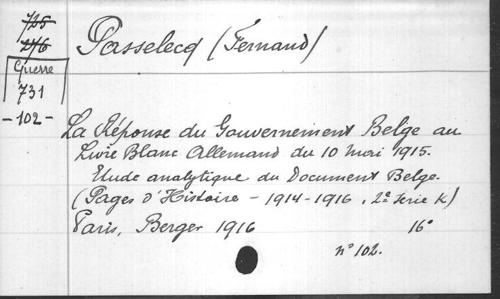 725
276
Guerre
731
- 102 -
Passelecq (Fernand)
La Réponse du Gouvernement Belge au
Livre Blanc Allemand du 10 Mai 1915.
Etude analytique du Document Belge.
(Pages d'Histoire - 1914-1916, 2e Serie K)
Paris, Berger 1916 16°
n° 102.